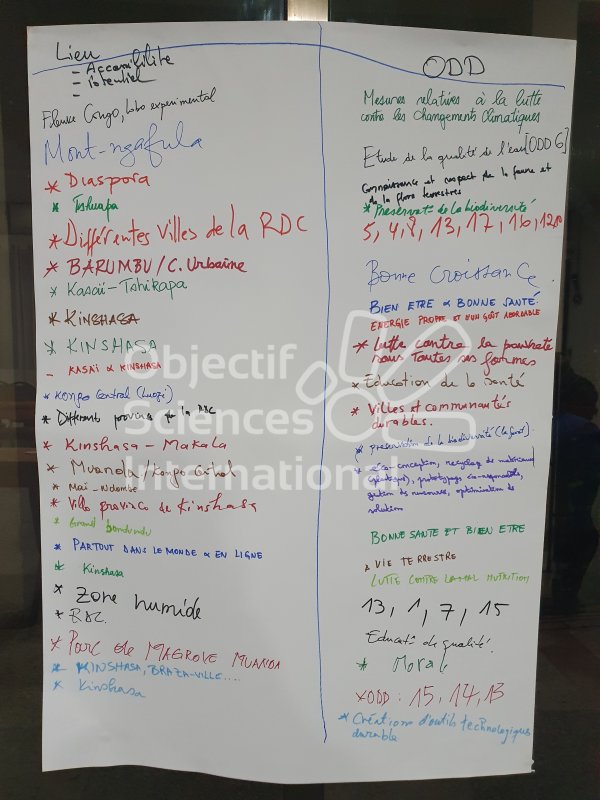 Lieu
- Accessibilité
- Potentiel
-
Fleuve Congo, Labo experimental
Mont-ngafula
* Diaspora
* Tshuapa
* Différentes Villes de la RDC
* BARUMBU / C. Urbaine
* Kasaï-Tshikapa
* KINSHASA
* KINSHASA
- KASAI & KINSHASA
* Kongo Central (Luozi)
* Différents provinces la RDC
* Kinshasa - Makala
* Muanda / Kongo Central
* Mai-Ndombe
* Ville province de Kinshasa
* Grand bandundu
* PARTOUT DANS LE MONDE & EN LIGNE
* Kinshasa
* Zone humide
* RDC
* Parc de MAGROVE MUANDA
* KINSHASA, BRAZA-VILLE....
* Kinshasa
ODD
Mesures relatives à la lutte
contre les changements climatiques
Etude de la qualité de l'eau [ODD 6]
Connaissance et respect de la faune et
de la flore terrestres
* Préservat° de la biodiversité
5, 4, 8, 13, 17, 16, 12
Bonne Croissance
BIEN ETRE & BONNE SANTÉ.
ENERGIE PROPRE ET D'UN COÛT ABORDABLE
* Lutte contre la pauvreté
sous toutes ses formes
* Education de la santé
* Villes et communautés
durables.
* préservation de la biodiversité (la forêt).
* éco-conception, recyclage de matériaux
prototypage éco-responsable,
gestion de ressources, optimisation de
solution
BONNE SANTE ET BIEN ETRE
* VIE TERRESTRE
LUTTE CONTRE LA MAL NUTRITION
13, 1, 7, 15
Educat° de qualité.
* Moral
* ODD : 15, 14, 13
* Créations d'outils technologiques
durable
Objectif
Sciences
International